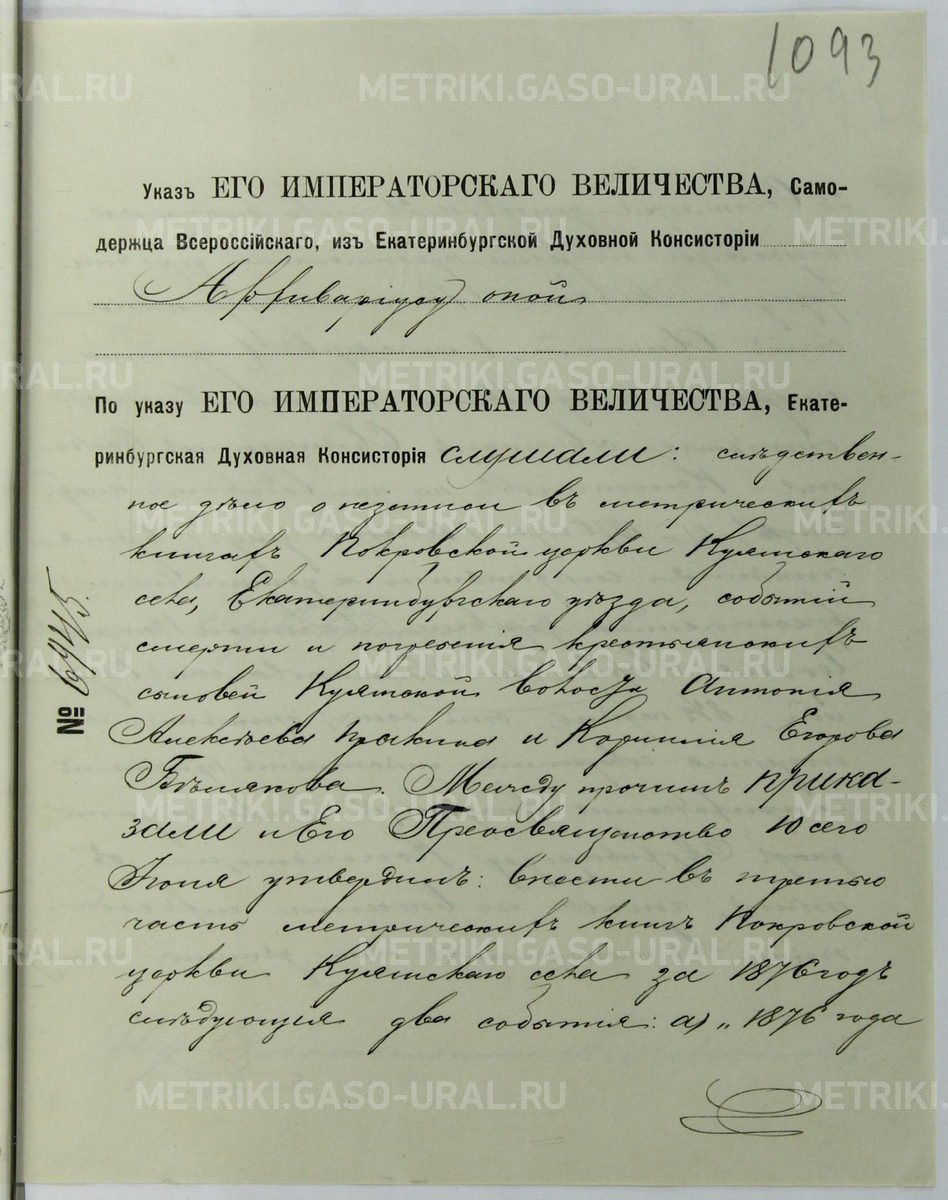 1093
Указъ ЕГО ИМПЕРАТОРСКАГО ВЕЛИЧЕСТВА, Само-
держца Всероссійскаго, изъ Екатеринбургской Духовной Консисторіи
Архиваріусу оной
По указу ЕГО ИМПЕРАТОРСКАГО ВЕЛИЧЕСТВА, Екате-
ринбургская Духовная Консисторія слушали: слѣдствен-
ное дѣло о незаписи въ метрическихъ
книгахъ Покровской церкви Куяшскаго
села, Екатеринбургскаго уѣзда, событій
смерти и погребенія крестьянскихъ
сыновей Куяшской волости Антонія
Алексѣева и Корнилія Егорова
Бѣлякова. Между прочимъ прика-
зали и Его Преосвященство 10 сего
Іюня утвердилъ: внести въ третью
часть метрическихъ книгъ Покровской
церкви Куяшскаго села за 1876 годъ
слѣдующія два события: а) „1876 года
№ 6445.
METRIKI.GASO-URAL.RU